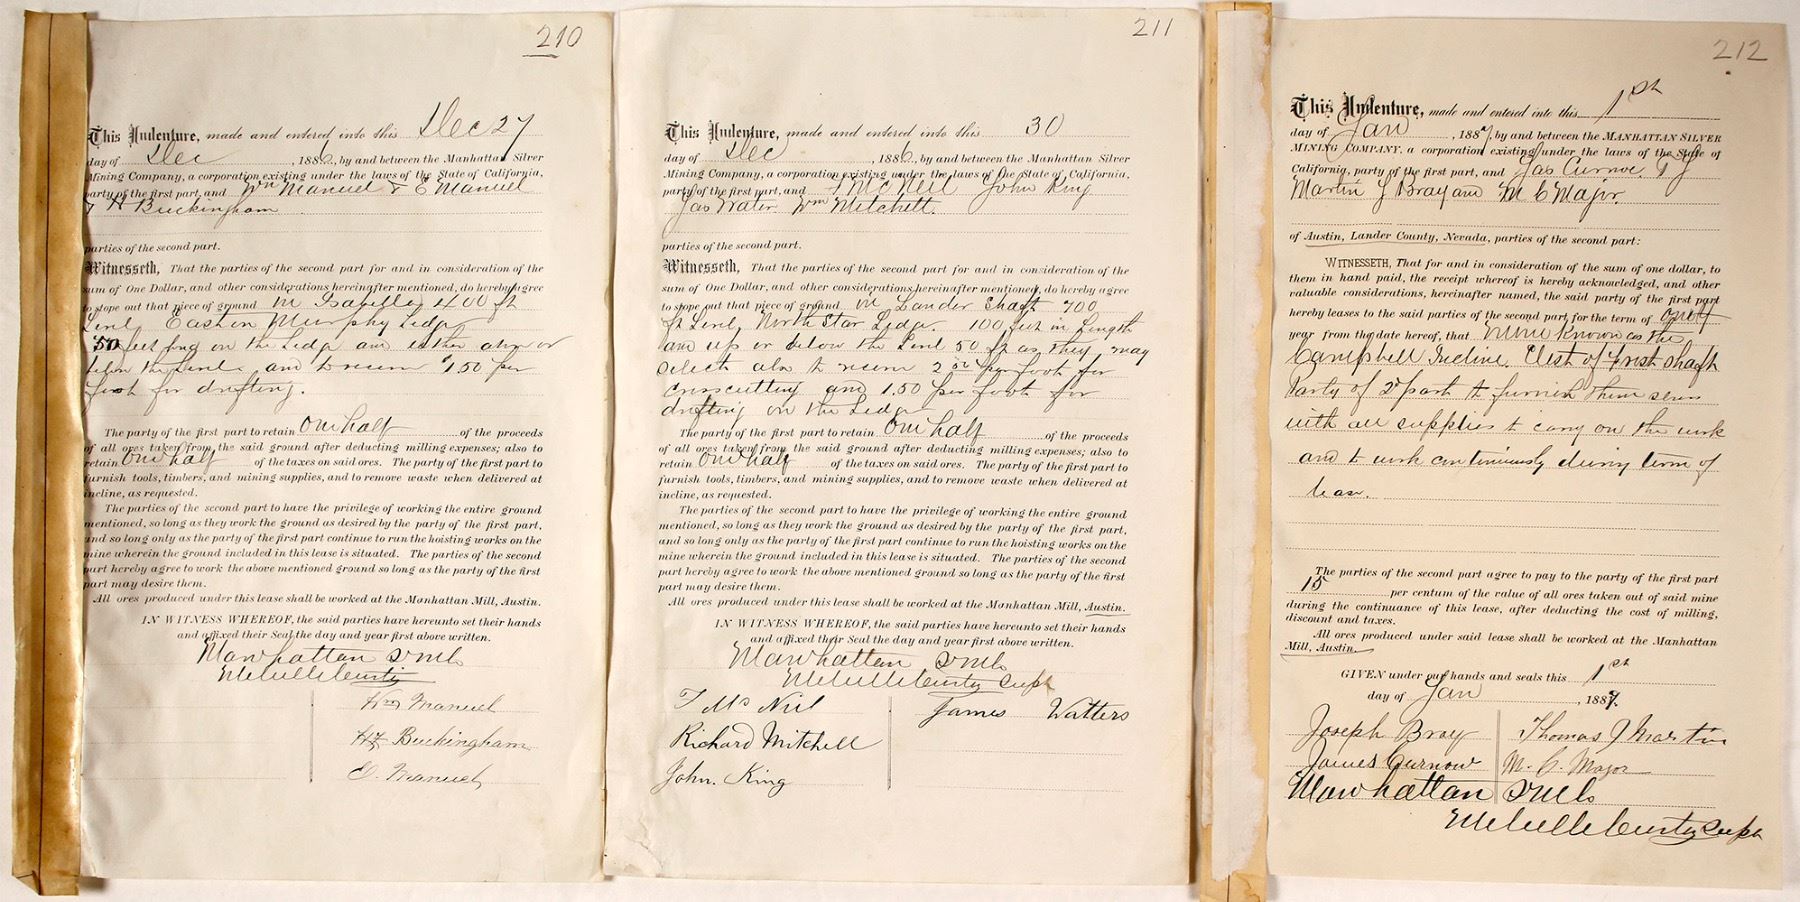 210
This Indenture, made and entered into this Dec 27
day of Dec, 1886, by and between the Manhattan Silver
Mining Company, a corporation existing under the laws of the State of California,
party of the first part, and Wm Manuel & E Manuel
& H Buckingham
parties of the second part.
Witnesseth, That the parties of the second part for and in consideration of the
sum of One Dollar, and other considerations hereinafter mentioned, do hereby agree
to stope out that piece of ground in Isabella 400 ft
Level, East on Murphy Ledge
50 feet long on the Ledge and either above or
below the Level and to receive $1.50 per
foot for drifting.
The party of the first part to retain One half of the proceeds
of all ores taken from the said ground after deducting milling expenses; also to
retain One half of the taxes on said ores. The party of the first part to
furnish tools, timbers, and mining supplies, and to remove waste when delivered at
incline, as requested.
The parties of the second part to have the privilege of working the entire ground
mentioned, so long as they work the ground as desired by the party of the first part,
and so long only as the party of the first part continue to run the hoisting works on the
mine wherein the ground included in this lease is situated. The parties of the second
part hereby agree to work the above mentioned ground so long as the party of the first
part may desire them.
All ores produced under this lease shall be worked at the Manhattan Mill, Austin.
IN WITNESS WHEREOF, the said parties have hereunto set their hands
and affixed their Seal the day and year first above written.
Manhattan SMCo
Melville Curtis
Wm Manuel
Buckingham
E. Manuel
211
This Indenture, made and entered into this 30
day of Dec, 1886, by and between the Manhattan Silver
Mining Company, a corporation existing under the laws of the State of California,
party of the first part, and T McNeil John King
Jas Water Wm Mitchell.
parties of the second part.
Witnesseth, That the parties of the second part for and in consideration of the
sum of One Dollar, and other considerations hereinafter mentioned, do hereby agree
to stope out that piece of ground in Lander Shaft 700
ft Level, North Star Ledge. 100 feet in Length
and up or below the Level 50 ft as they may
select also to receive 2 50 per foot for
crosscutting and 1.50 per foot for
drifting on the Ledge
The party of the first part to retain One half of the proceeds
of all ores taken from the said ground after deducting milling expenses; also to
retain One half of the taxes on said ores. The party of the first part to
furnish tools, timbers, and mining supplies, and to remove waste when delivered at
incline, as requested.
The parties of the second part to have the privilege of working the entire ground
mentioned, so long as they work the ground as desired by the party of the first part,
and so long only as the party of the first part continue to run the hoisting works on the
mine wherein the ground included in this lease is situated. The parties of the second
part hereby agree to work the above mentioned ground so long as the party of the first
part may desire them.
All ores produced under this lease shall be worked at the Manhattan Mill, Austin.
IN WITNESS WHEREOF, the said parties have hereunto set their hands
and affixed their Seal the day and year first above written.
Manhattan SMCo
Melville Curtis Supt
T Mc Neil
James Watters
Richard Mitchell
John. King
212
This Indenture, made and entered into this 1st
day of Jan, 1887, by and between the MANHATTAN SILVER
MINING COMPANY, a corporation existing under the laws of the State of
California, party of the first part, and Jas Curnow, T J
Martin J Bray and M C Major.
of Austin, Lander County, Nevada, parties of the second part:
WITNESSETH, That for and in consideration of the sum of one dollar, to
them in hand paid, the receipt whereof is hereby acknowledged, and other
valuable considerations, hereinafter named, the said party of the first part
hereby leases to the said parties of the second part for the term of one
year from the date hereof, that mine known as the
Campbell Incline. West of Frost shaft
Party of 2d part to furnish them selves
with all supplies to carry on the work
and to work continuously during term of
lease.
The parties of the second part agree to pay to the party of the first part
15 per centum of the value of all ores taken out of said mine
during the continuance of this lease, after deducting the cost of milling,
discount and taxes.
All ores produced under said lease shall be worked at the Manhattan
Mill, Austin.
GIVEN under our hands and seals this 1st
day of Jan, 1887.
Joseph Bray
Thomas J Martin
James Curnow
M. C. Major
Manhattan SMCo
Melville Curtis Supt